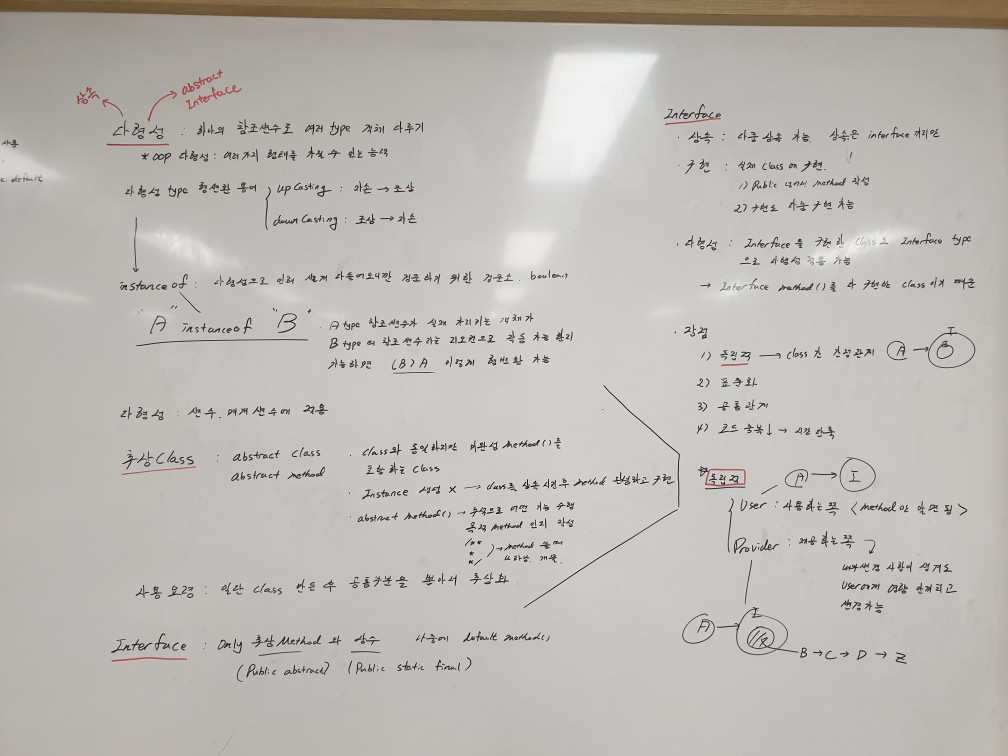 사용
e. default
상속
abstract
Interface
다형성 : 하나의 참조변수로 여러 type 객체 다루기
* OOP 다형성 : 여러가지 형태를 가질 수 있는 능력
다형성 type 형변환 용어
up casting : 자손 → 조상
down Casting : 조상 → 자손
instanceof : 다형성으로 인해 실제 다들어오니깐 검문하기 위한 검문소. boolean
"A" instanceof "B"
· A type 참조변수가 실제 가리키는 객체가
B type의 참조변수라는 리모컨으로 작동 가능한지
가능하면 (B) A 이렇게 형변환 가능
다형성 : 변수, 매개변수에 적용
추상 Class : abstract class
abstract method
· class와 동일하지만 미완성 method()를
포함하는 class
· Instance 생성 X → class를 상속시킨후 method 완성하고 구현
· abstract method() → 주석으로 어떤 기능 수행
목적 method 인지 작성
/**
*
*/
→ method
사용 요령 : 일단 class 만든 후 공통부분을 뽑아서 추상화
Interface : Only 추상 Method 와 상수 나중에 default method()
(Public abstract) (Public static final)
Interface
· 상속 : 다중 상속 가능 상속은 interface 끼리만!
· 구현 : 실제 class에 구현.
1) Public 으로 method 작성
2) 구현도 다중 구현 가능
· 다형성 : Interface를 구현한 class도 Interface type
으로 다형성 적용 가능
→ Interface method()를 다 구현한 class이기 때문
· 장점
1) 독립적 → class 간 간접관계
A → I
B
2) 표준화
3) 공통관계
4) 코드 중복↓ → 시간 단축
독립적
A → I
User : 사용하는 쪽 <method만 알면 됨>
Provider : 제공하는 쪽
변경 사항이 생겨도
User에게 영향 안끼치고
변경가능
A → I
B → C → D → Z